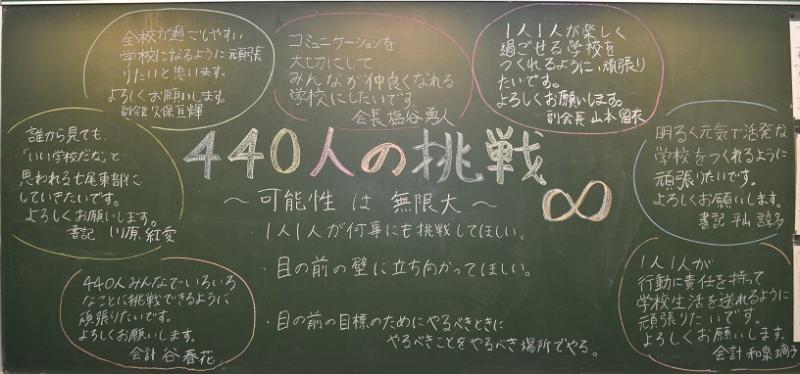 全校が過ごしやすい
学校になるように頑張
りたいと思います。
よろしくお願いします。
副会長 久保亘輝
コミュニケーションを
大切にして
みんなが仲良くなれる
学校にしたいです。
会長 塩谷勇人
1人1人が楽しく
過ごせる学校を
つくれるように、頑張り
たいです。
よろしくお願いします。
副会長 山本留衣
誰から見ても、
「いい学校だな」と
思われる七尾東部に
していきたいです。
よろしくお願いします。
書記 川原紅愛
440人の挑戦
～可能性は無限大～
∞
・1人1人が何事にも挑戦してほしい。
・目の前の壁に立ち向かってほしい。
・目の前の目標のためにやるべきときに
やるべきことをやるべき場所でやる。
明るく元気で活発な
学校をつくれるように
頑張りたいです。
よろしくお願いします。
書記 平山諒多
440人みんなでいろいろ
なことに挑戦できるように
頑張りたいです。
よろしくお願いします。
会計 谷春花
1人1人が
行動に責任を持って
学校生活を送れるように
頑張りたいです。
よろしくお願いします。
会計 和泉璃子